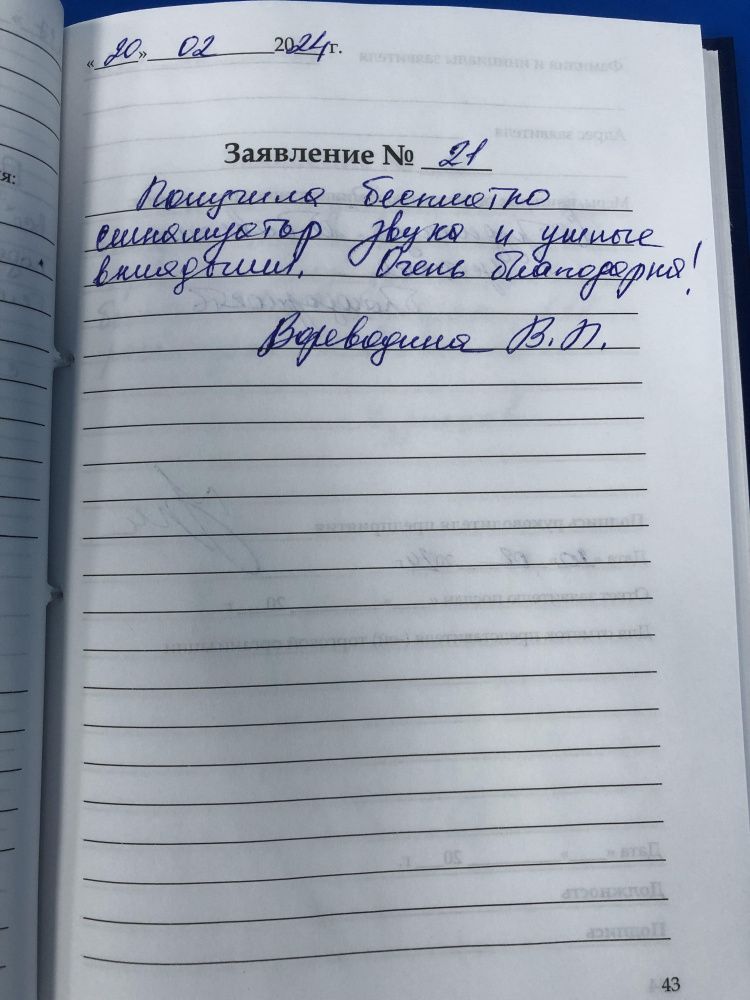 «20» 02 2024 г.
Заявление № 21
Получила бесплатно
сигнализатор звука и ушные
вкладыши. Очень благодарна!
В.П.
43